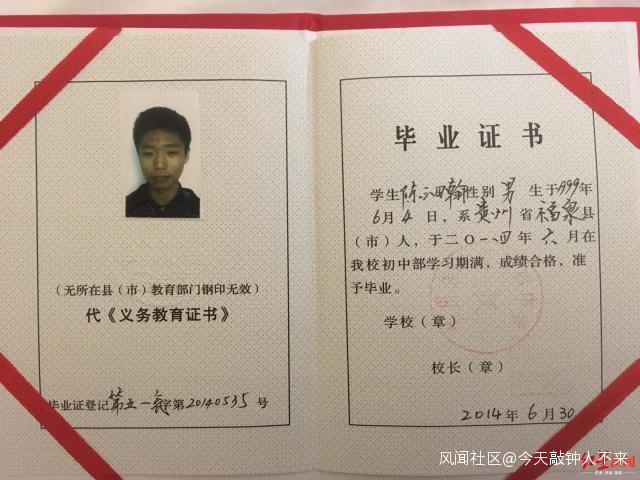 （无所在县（市）教育部门钢印无效）
代《义务教育证书》
毕业证登记第五一 字第20140535 号
毕业证书
学生陈泗翰性别 男 生于1999年
6月4日，系贵州省福泉县
（市）人，于二〇一四年六月在
我校初中部学习期满，成绩合格，准
予毕业。
学校（章）
校长（章）
2014年6月30
风闻社区@今天敲钟人不来